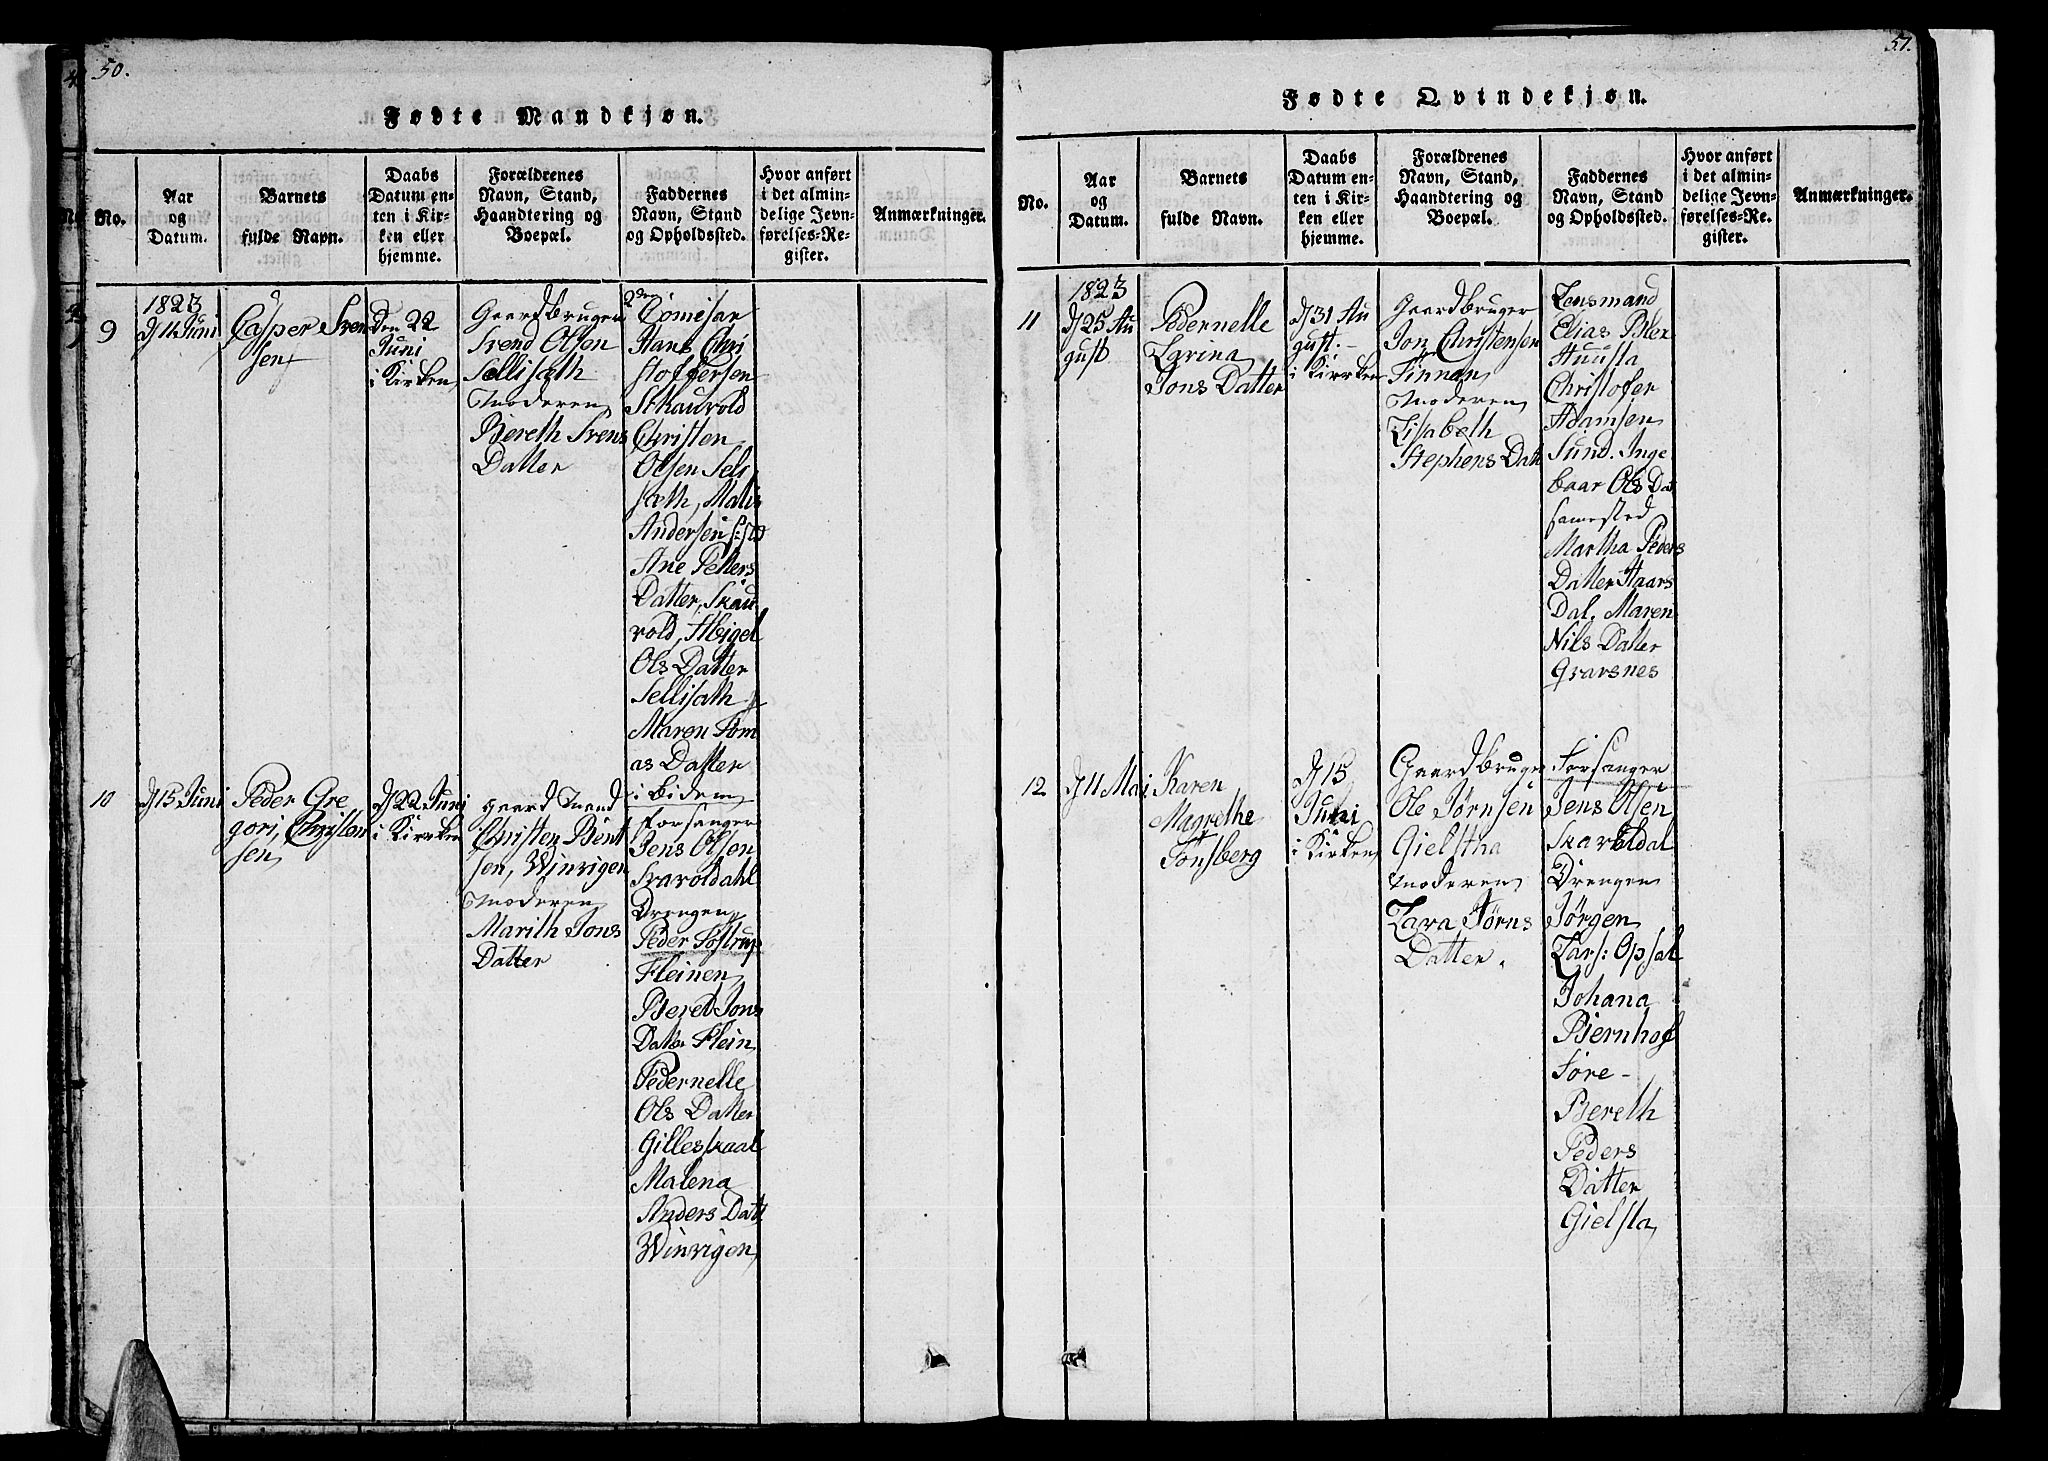 50.
Fødte Mandkjøn.
No.
Aar
og
Datum.
Barnets
fulde Navn.
Daabs
Datum en-
ten i Kir-
ken eller
hjemme.
Forældrenes
Navn, Stand,
Haandtering og
Boepæl.
Faddernes
Navn, Stand
og Opholdssted.
Hvor anført
i det almin-
delige Jevn-
førelses-Re-
gister.
Anmærkninger.
9
1823
Casper Sven
sen
Den 22
Juni
i Kirken
Gaardbruger
Svend Olsen
Sellisath
Moderen
Bereth Svens
Datter
Hans Chri
stoffersen
Christen
Olsen Sels
sæth, Malis
Andersen
Ane Peters
Datter, Skau
vold, Abigel
Ols Datter
Sellisath
Maren Tom
as Datter
ibidem
10
D 15 Juni
Peder Gre
gori, Christen
sen
D 22 Juni
i Kirken
Gaard Mand
Christen Bent
sen, Winvigen
Moderen
Marith Jons
Datter
Forsanger
Jens Olsen
Skavoldahl
Drengen
Peder
Fleinen
Beret Jons
Datter Flein
Pedernelle
Ols Datter
Gilleskaal
Malena
Anders Datt
Winvigen
51.
Fødte Qvindekjøn.
No.
Aar
og
Datum.
Barnets
fulde Navn.
Daabs
Datum en-
ten i Kir-
ken eller
hjemme.
Forældrenes
Navn, Stand,
Haandtering og
Boepæl.
Faddernes
Navn, Stand
og Opholdssted.
Hvor anført
i det almin-
delige Jevn-
førelses-Re-
gister.
Anmærkninger.
11
1823
D 25 Au
gust
Pedernelle
Larina
Jons Datter
D 31 Au
gust.
i Kirken
Gaardbruger
Jon Christensen
Finnan
Moderen
Lisabeth
Stephens Datt
Lensmand
Elias
Christofer
Adamsen
Sund. Inge
baar Ols Dat
samested
Martha Peders
Datter Haars
Dal, Maren
Nils Datter
Gravsnes
12
D 11 Mai
Karen
Magrethe
Tønsberg
D 15
Juni
i Kirken
Gaardbruger
Ole Jørnsen
Gielstha
Moderen
Lava Jørns
Datter.
Forsanger
Jens Olsen
Skavoldal
Drengen
Jørgen
Lars: Opsal
Johana
Bernhof
Føre -
Bereth
Peders
Datter
Gielsta